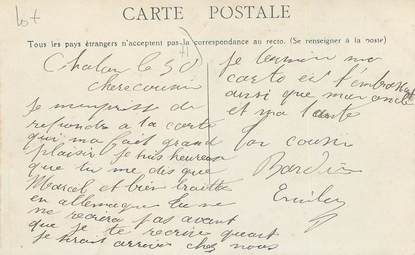 lot
CARTE POSTALE
Tous les pays étrangers n'acceptent pas la correspondance au recto. (Se renseigner à la poste)
Chalon le 30
chere cousin
je mempresse de
reponde a ta carte
qui ma fait grand
plaisir je suis heureux
que tu me dis que
Marcel et bien traitte
en allemagne tu ne
me recrira pas avant
que je te recrive quart
je serait arrivée chez nous
je termine ma
carte en t'embrassant
aussi que mon oncle
et ma tante
Ton cousin
Bardin
Emilien